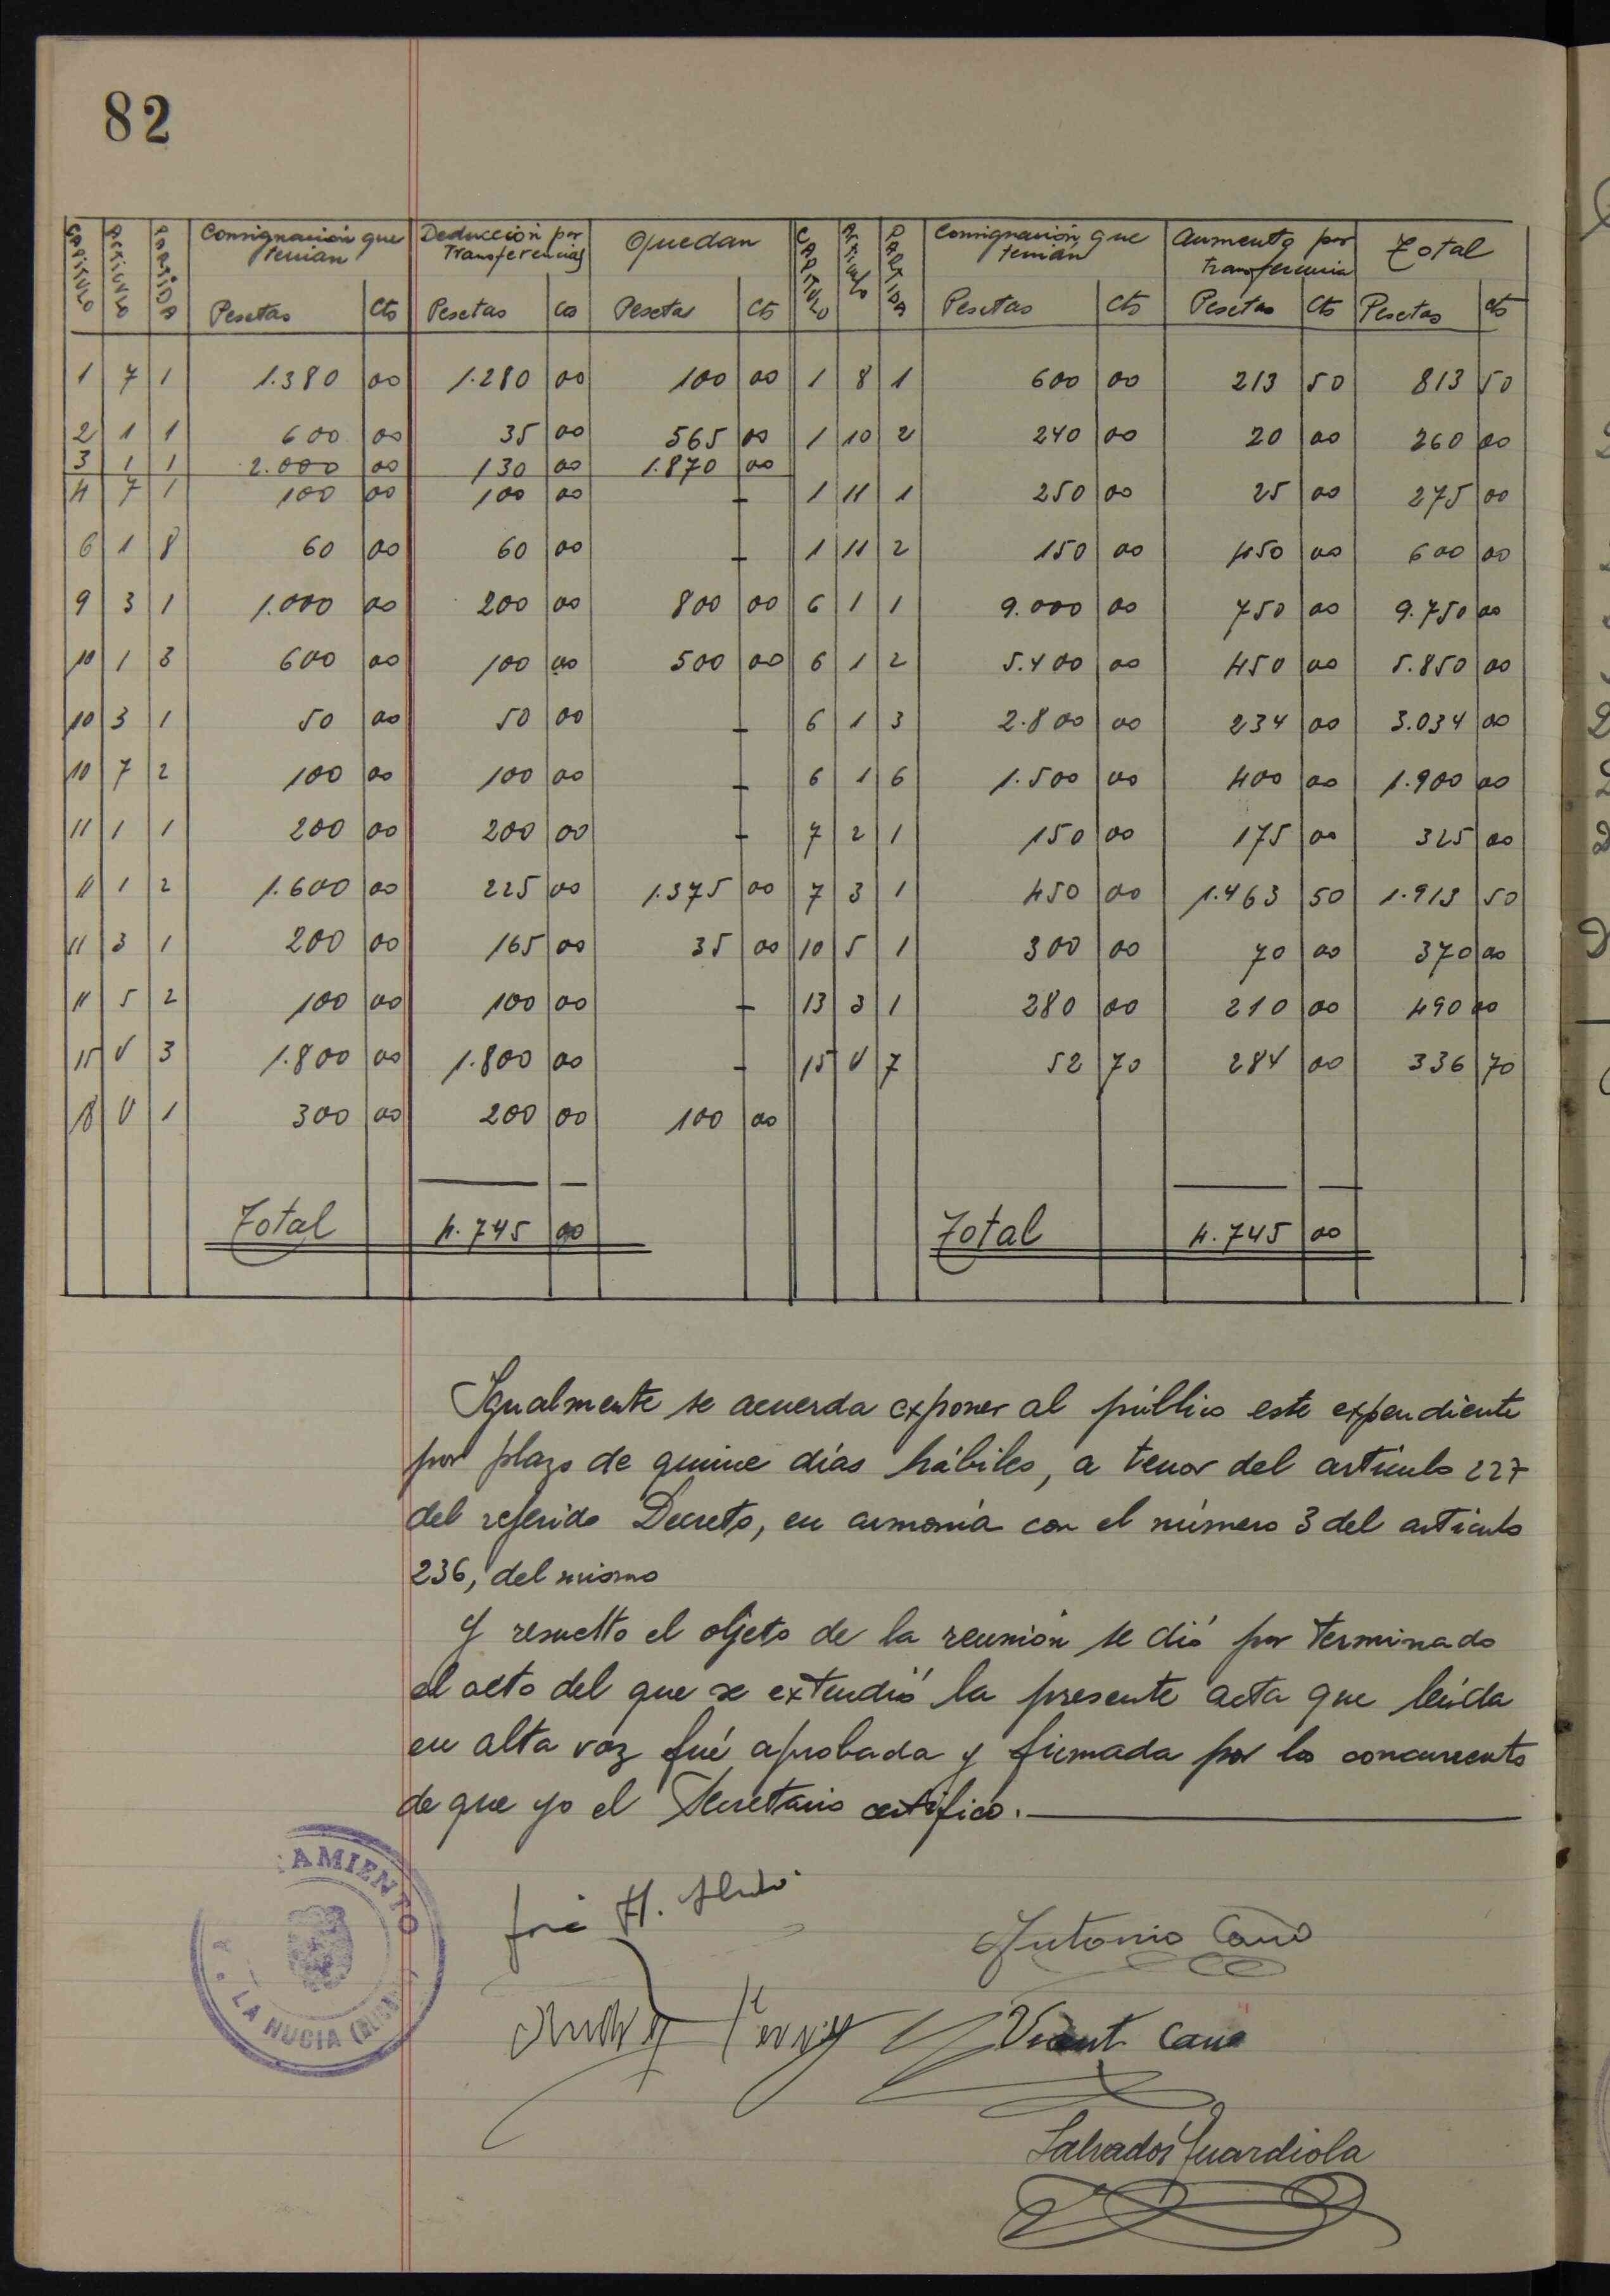 82
CAPITULO ARTICULO PARTIDA Consignación que tenian Deducción por Transferencias Quedan CAPITULO Artículo PARTIDA Consignación que tenian Aumento por transferencia Total
Pesetas Cts Pesetas Cts Pesetas Cts Pesetas Cts Pesetas Cts Pesetas cts
1 7 1 1.380 00 1.280 00 100 00 1 8 1 600 00 213 50 813 50
2 1 1 600 00 35 00 565 00 1 10 2 240 00 20 00 260 00
3 1 1 2.000 00 130 00 1.870 00
4 7 1 100 00 100 00 - 1 11 1 250 00 25 00 275 00
6 1 8 60 00 60 00 - 1 11 2 150 00 450 00 600 00
9 3 1 1.000 00 200 00 800 00 6 1 1 9.000 00 750 00 9.750 00
10 1 3 600 00 100 00 500 00 6 1 2 5.400 00 450 00 5.850 00
10 3 1 50 00 50 00 - 6 1 3 2.800 00 234 00 3.034 00
10 7 2 100 00 100 00 - 6 1 6 1.500 00 400 00 1.900 00
11 1 1 200 00 200 00 - 7 2 1 150 00 175 00 325 00
11 1 2 1.600 00 225 00 1.375 00 7 3 1 450 00 1.463 50 1.913 50
11 3 1 200 00 165 00 35 00 10 5 1 300 00 70 00 370 00
11 5 2 100 00 100 00 - 13 3 1 280 00 210 00 490 00
15 V 3 1.800 00 1.800 00 - 15 V 7 52 70 284 00 336 70
18 V 1 300 00 200 00 100 00
Total 4.745 00 Total 4.745 00
Igualmente se acuerda exponer al público este expendiente
por plazo de quince días hábiles, a tenor del artículo 227
del referido Decreto, en armonía con el número 3 del artículo
236, del mismo
Y resuelto el objeto de la reunión se dió por terminado
el acto del que se extendió la presente acta que leída
en alta voz fué aprobada y firmada por los concurrentes
de que yo el Secretario certifico.
AMIENTO
LA NUCIA
José
Antonio Cano
Vicent Cano
Salvador Guardiola